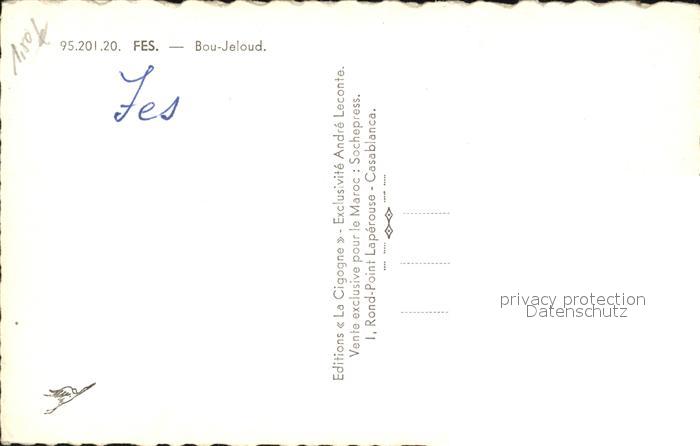 1,50
95.201.20. FES. — Bou-Jeloud.
Fes
Editions « La Cigogne » - Exclusivité André Leconte.
Vente exclusive pour le Maroc : Sochepress.
1, Rond-Point Lapérouse - Casablanca.
privacy protection
Datenschutz